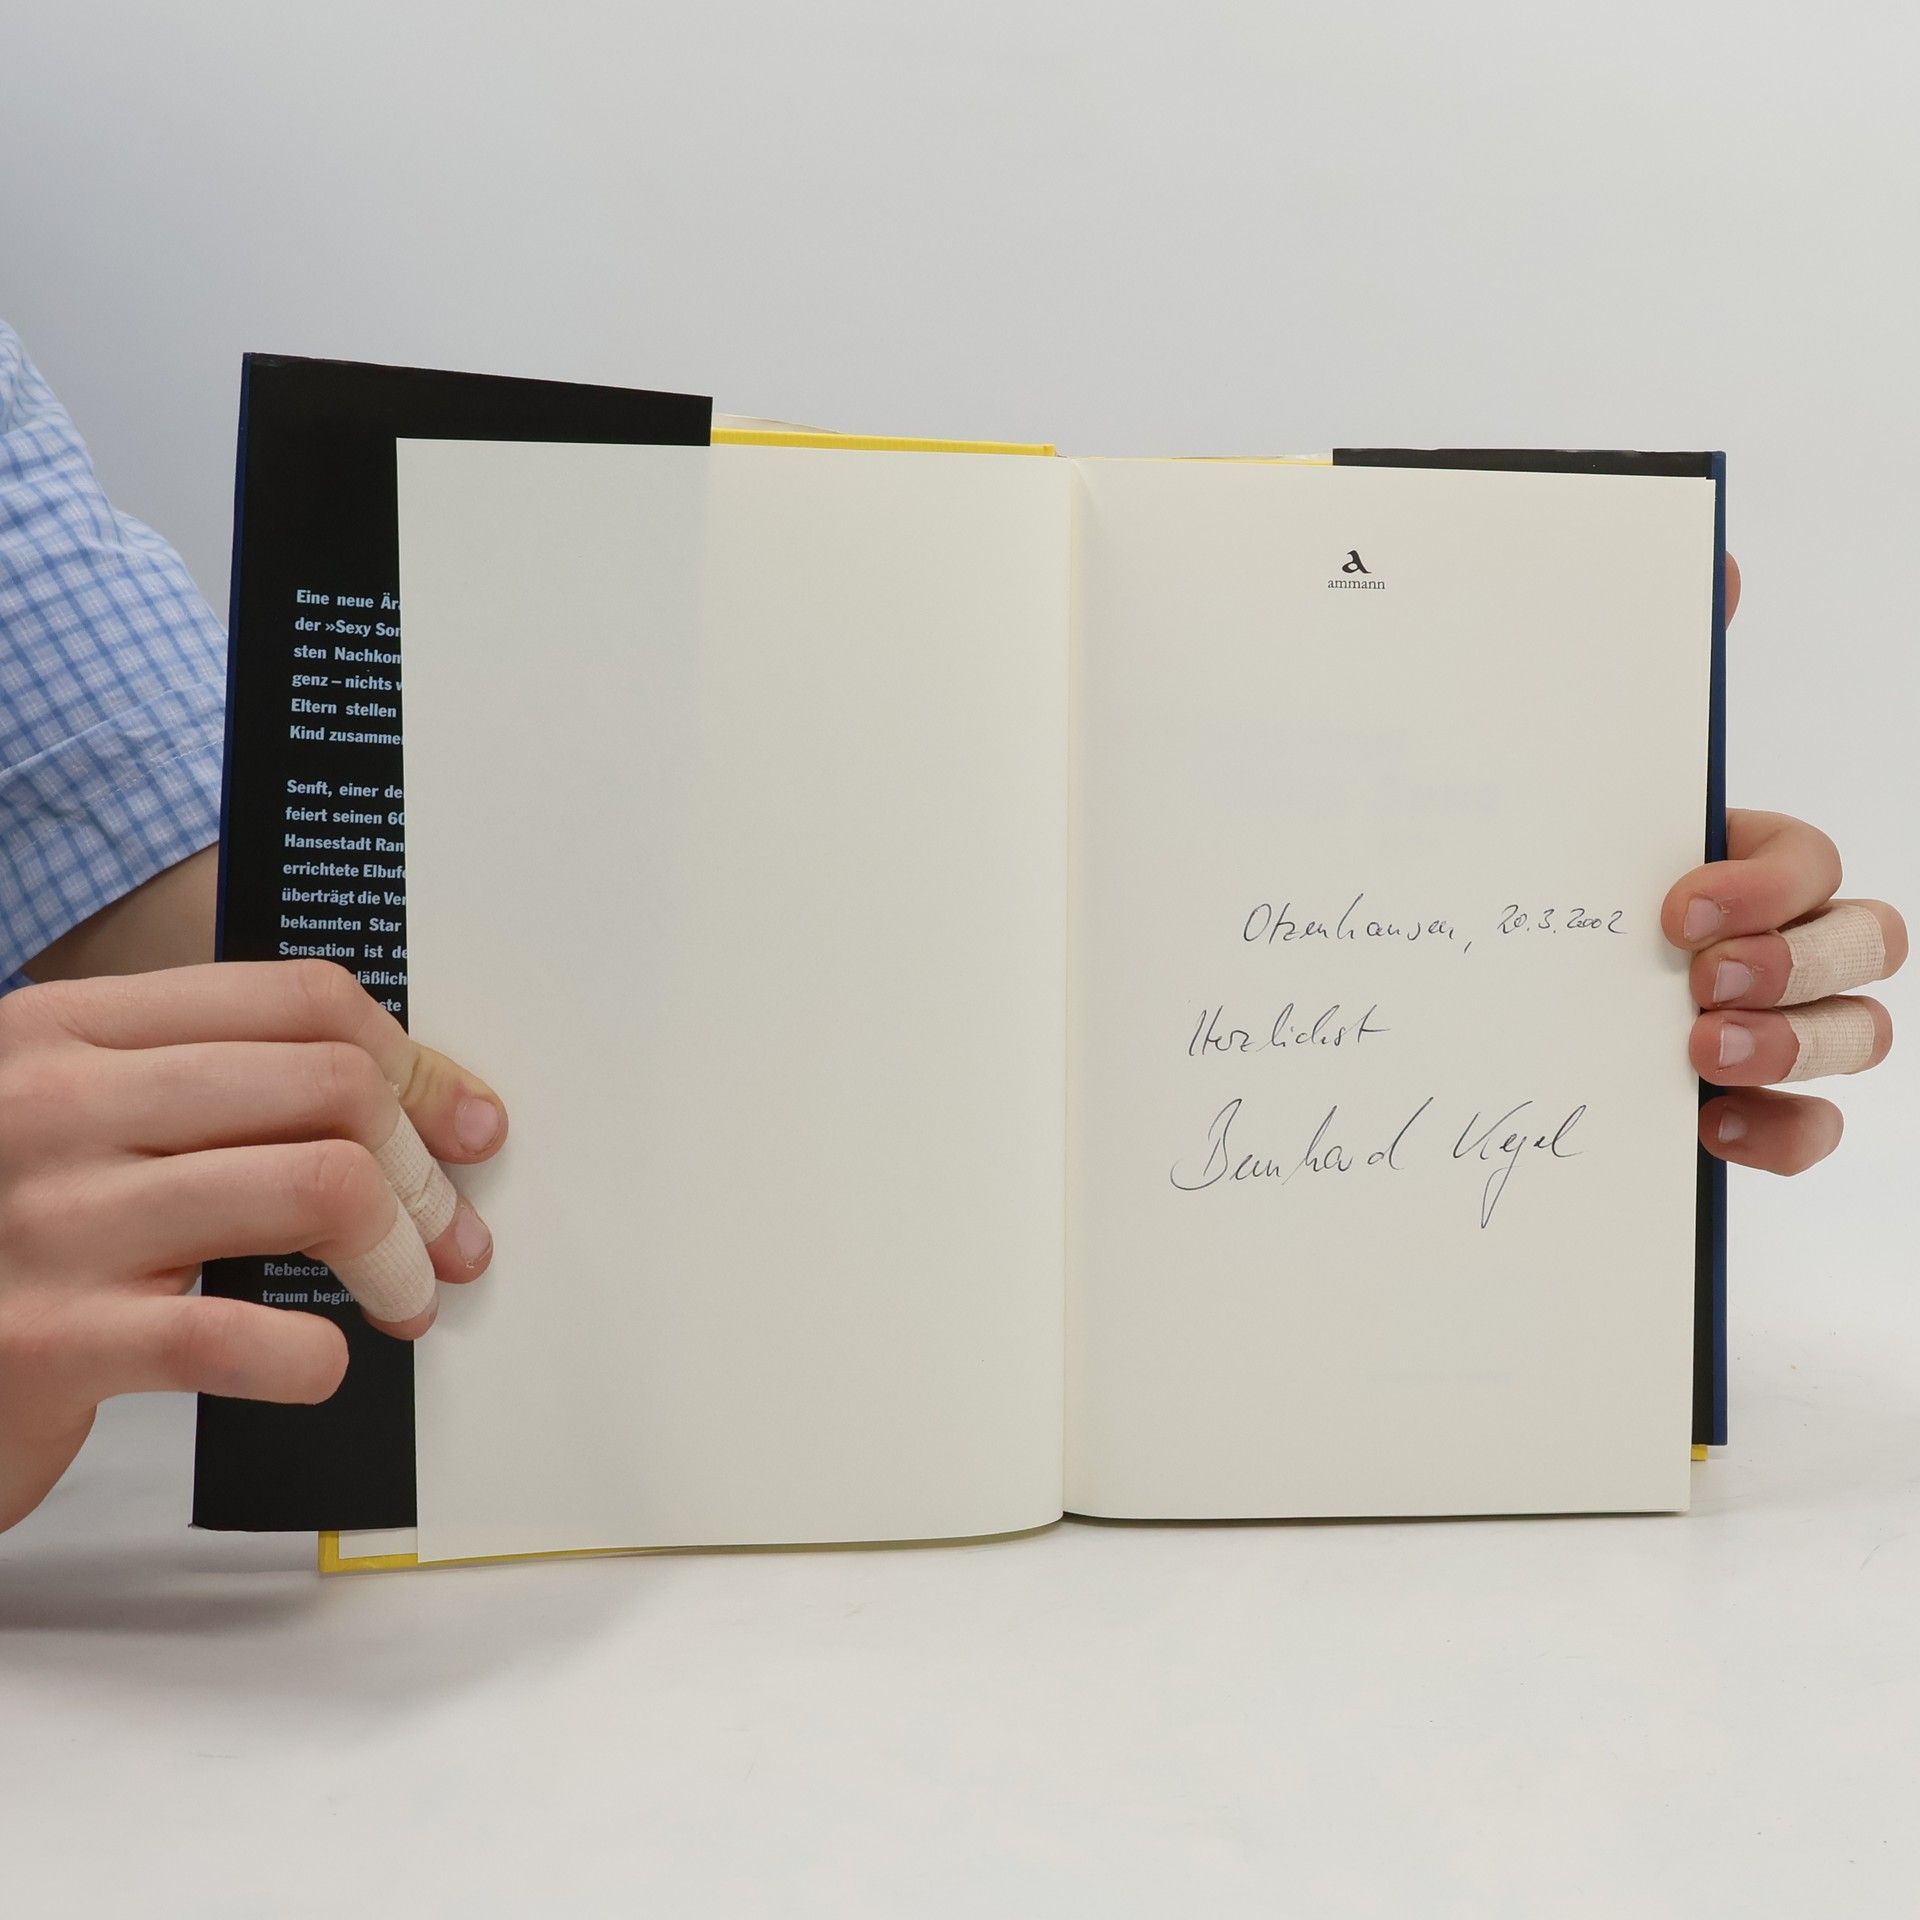 Eine neue Är
der »Sexy Son
sten Nachkom
genz – nichts
Eltern stellen
Kind zusamme
Senft, einer de
feiert seinen 60
Hansestadt Ran
errichtete Elbufe
überträgt die Ver
bekannten Star
Sensation ist de
läßlich
ste
Rebecca
traum begin
a
ammann
Otzenhausen, 20.3.2002
Herzlichst
Bernhard Kegel